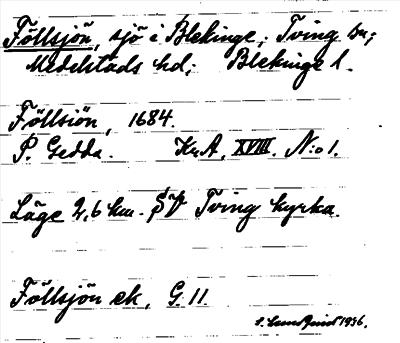 Föllsjön, sjö i Blekinge; Tving sn;
Medelstads hd; Blekinge l.
Föllsiön, 1684.
P. Gedda. Kr.A. XVIII. N:o 1.
Läge 2,6 km. SV Tving kyrka.
Föllsjön ek, G. 11
1936.